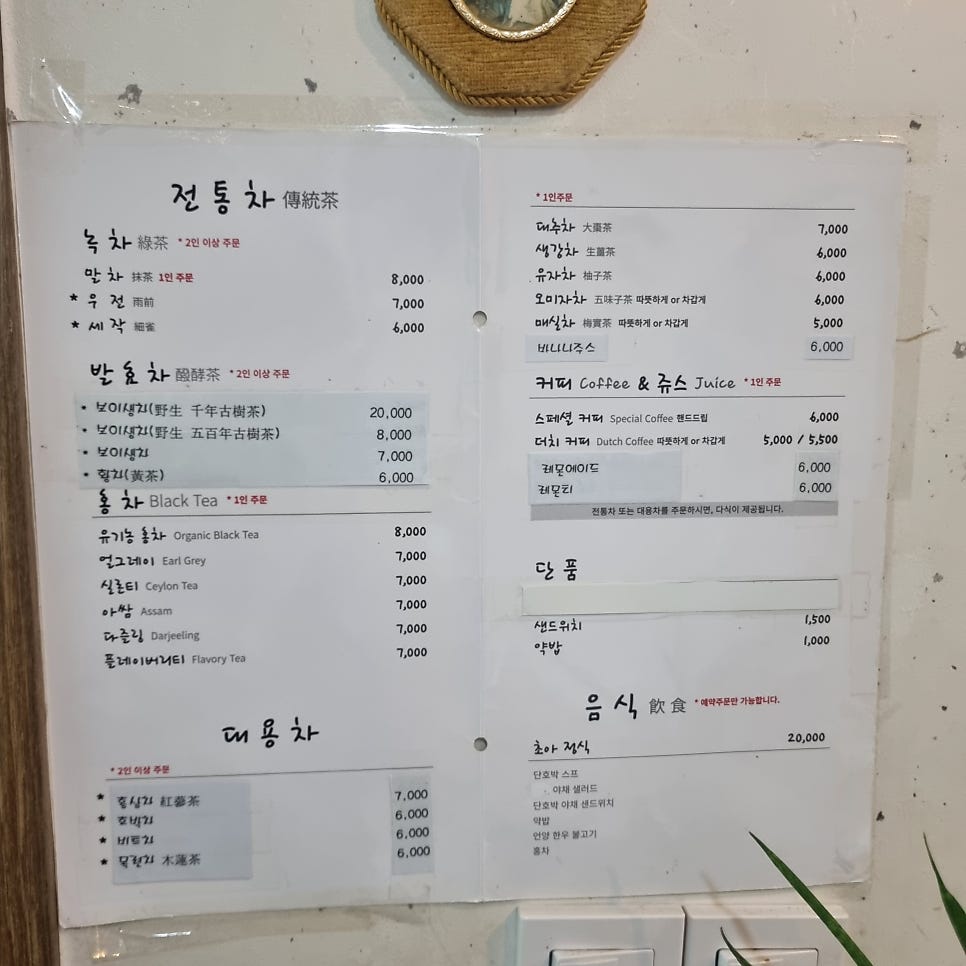 전통차 傳統茶
녹차 綠茶 * 2인 이상 주문
말차 抹茶 1인 주문 8,000
* 우전 雨前 7,000
* 세작 細雀 6,000
발효차 醱酵茶 * 2인 이상 주문
• 보이생차(野生 千年古樹茶) 20,000
• 보이생차(野生 五百年古樹茶) 8,000
• 보이생차 7,000
• 황차(黃茶) 6,000
홍차 Black Tea * 1인 주문
유기농 홍차 Organic Black Tea 8,000
얼그레이 Earl Grey 7,000
실론티 Ceylon Tea 7,000
아쌈 Assam 7,000
다즐링 Darjeeling 7,000
플레이버리티 Flavory Tea 7,000
대용차
* 2인 이상 주문
* 홍삼차 紅蔘茶 7,000
* 호박차 6,000
* 비트차 6,000
* 목련차 木蓮茶 6,000
* 1인주문
대추차 大棗茶 7,000
생강차 生薑茶 6,000
유자차 柚子茶 6,000
오미자차 五味子茶 따뜻하게 or 차갑게 6,000
매실차 梅實茶 따뜻하게 or 차갑게 5,000
바나나쥬스 6,000
커피 Coffee & 쥬스 Juice * 1인 주문
스페셜 커피 Special Coffee 핸드드립 6,000
더치 커피 Dutch Coffee 따뜻하게 or 차갑게 5,000 / 5,500
레몬에이드 6,000
레몬티 6,000
전통차 또는 대용차를 주문하시면, 다식이 제공됩니다.
단품
샌드위치 1,500
약밥 1,000
음식 飮食 * 예약주문만 가능합니다.
초아 정식 20,000
단호박 스프
야채 샐러드
단호박 야채 샌드위치
약밥
언양 한우 불고기
홍차